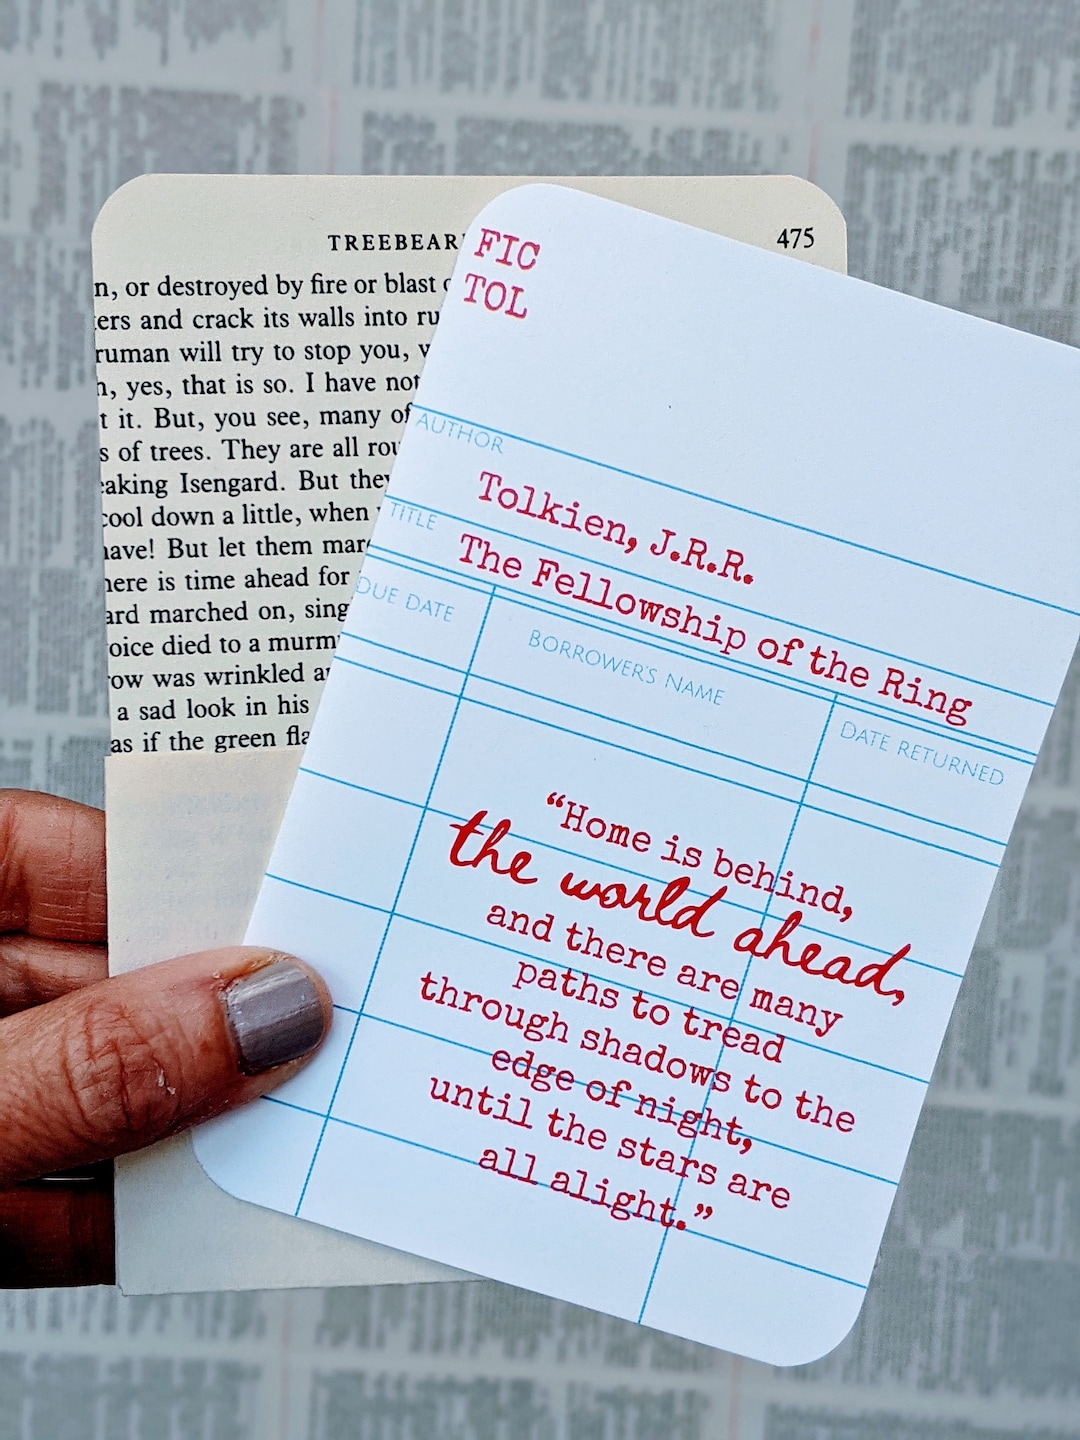 TREEBEAR
475
n, or destroyed by fire or blast
ers and crack its walls into ru
ruman will try to stop you,
, yes, that is so. I have not
t it. But, you see, many of
s of trees. They are all rou
eaking Isengard. But they
cool down a little, when
ave! But let them mar
here is time ahead for
ard marched on, sing
oice died to a murm
ow was wrinkled a
a sad look in his
as if the green fla
FIC
TOL
AUTHOR
Tolkien, J.R.R.
TITLE
The Fellowship of the Ring
DUE DATE
BORROWER'S NAME
DATE RETURNED
“Home is behind,
the world ahead,
and there are many
paths to tread
through shadows to the
edge of night,
until the stars are
all alight.”